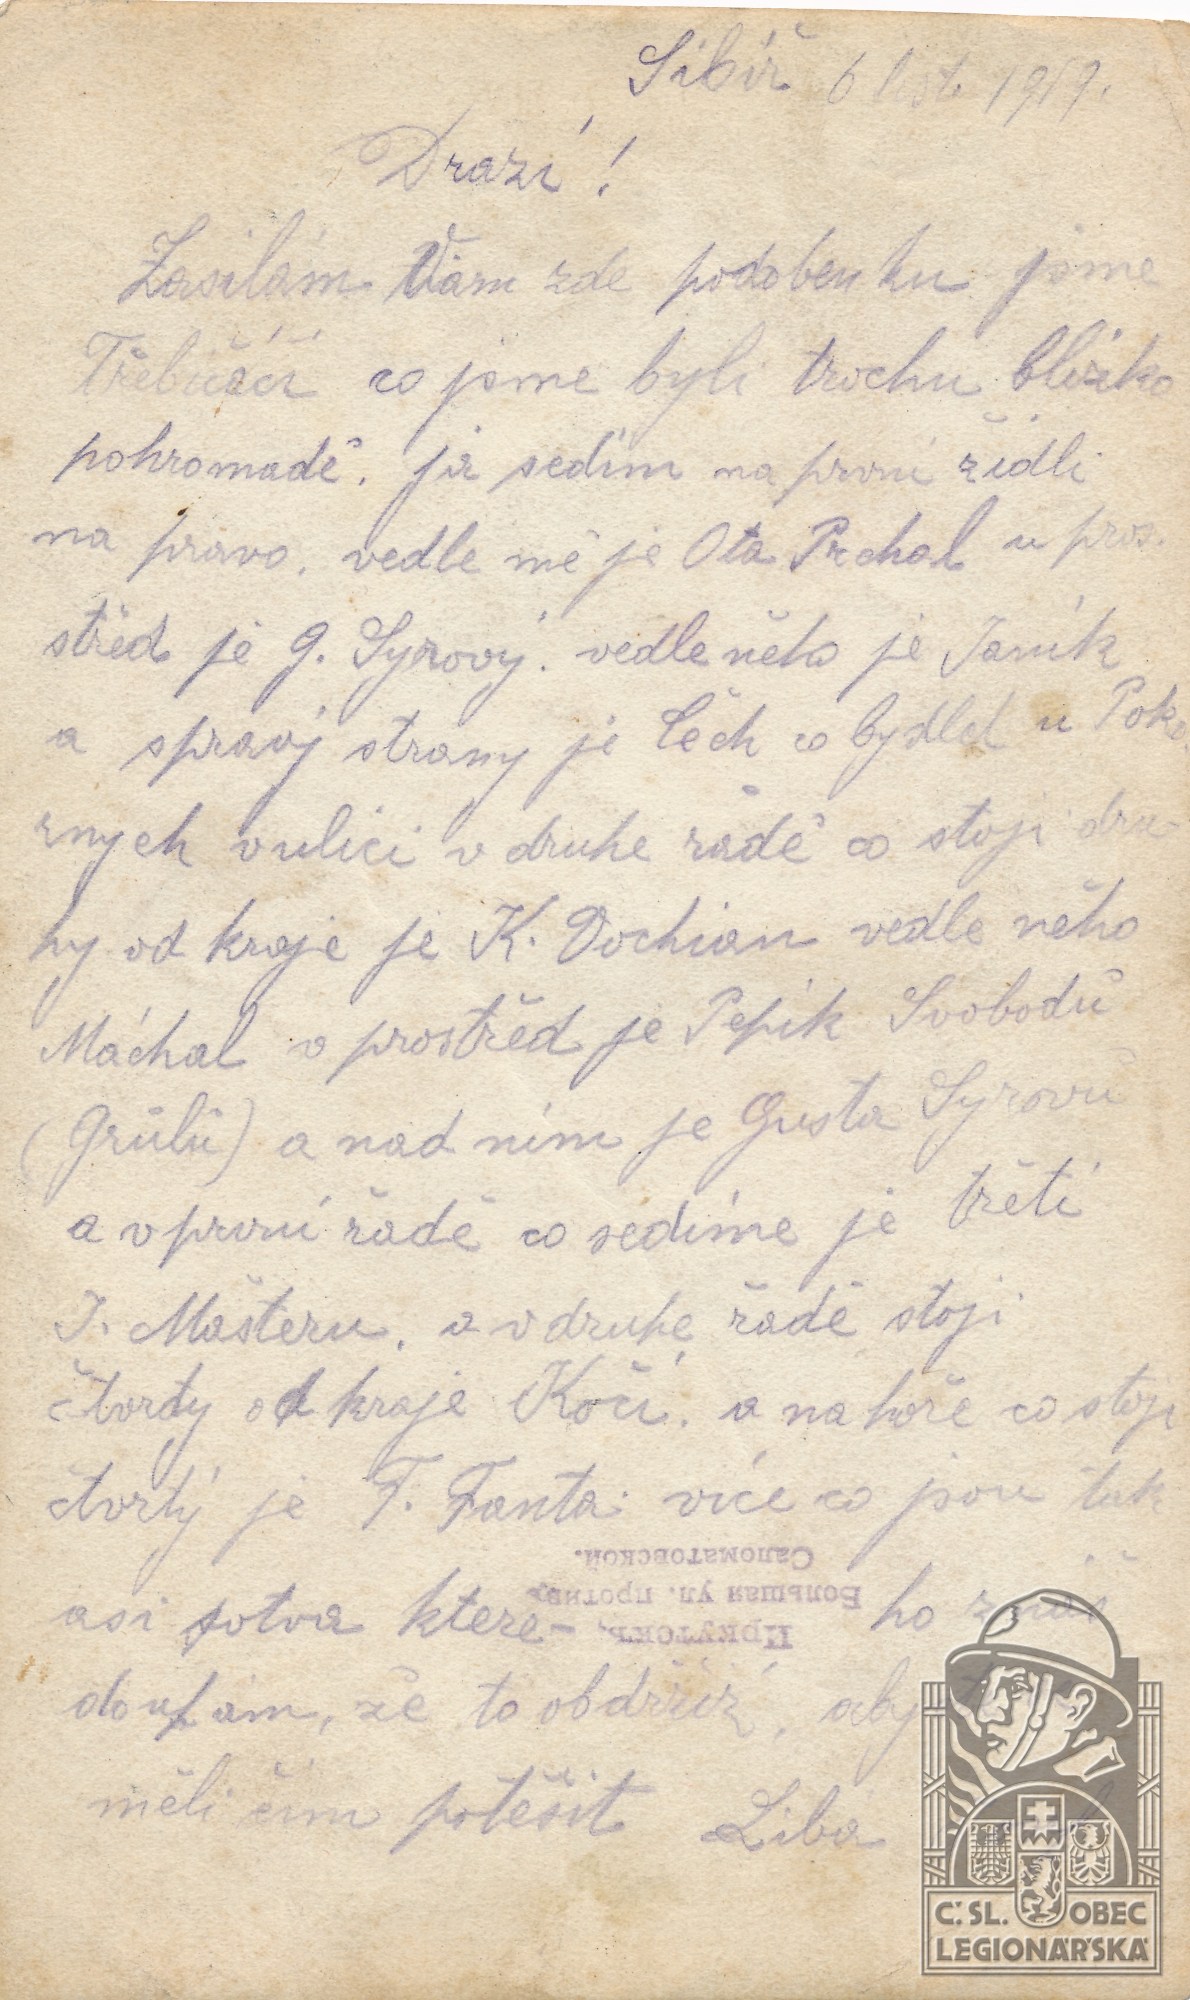 Sibiř 6 list. 1919.
Drazí!
Zasílám Vám zde podobenku jsme
Třebíčáčí co jsme byli trochu blízko
pohromadě. já sedím na první židli
na pravo. vedle mě je Ota Prchal u pros.
střed je g. Syrový. vedle něho je Janík
a spravý strany je Čech co bydlel u Poko
rnych vulici v druhe řadě co stoji dru-
hy od kraje je K. Dochian vedle něho
Máchal v prostřed je Pepík Svobodů
(Grülů) a nad ním je Gusta Syrovů
a v první řadě co sedíme je třetí
J. Mašteru. a v druhe řadě stoji
čtvrty od kraje Kočí. a nahoře co stoji
čtvrtý je F. Fanta. více co jsou tak
asi sotva ktere- ho znáš
doufám, že to obdržíž, aby
měli čím potěšit Liba
Иркутскъ,
Большая ул. против
Саломатовской.
Č.SL. OBEC
LEGIONÁŘSKÁ